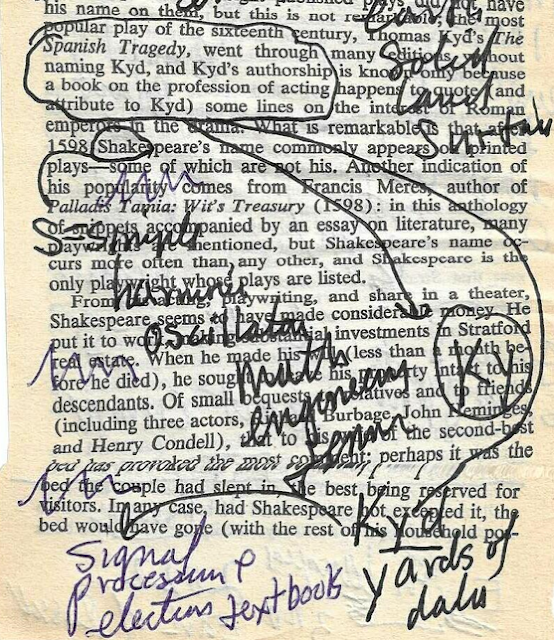 his name on them, but this is not remarkable; the most
popular play of the sixteenth century, Thomas Kyd's The
Spanish Tragedy, went through many editions without
naming Kyd, and Kyd's authorship is known only because
a book on the profession of acting happens to quote (and
attribute to Kyd) some lines on the interest of Roman
emperors in the drama. What is remarkable is that after
1598 Shakespeare's name commonly appears on printed
plays—some of which are not his. Another indication of
his popularity comes from Francis Meres, author of
Palladis Tamia: Wit's Treasury (1598): in this anthology
of snippets accompanied by an essay on literature, many
playwrights are mentioned, but Shakespeare's name oc-
curs more often than any other, and Shakespeare is the
only playwright whose plays are listed.
From his acting, playwriting, and share in a theater,
Shakespeare seems to have made considerable money. He
put it to work, making substantial investments in Stratford
real estate. When he made his will (less than a month be-
fore he died), he sought to leave his property intact to his
descendants. Of small bequests to relatives and to friends
(including three actors, Richard Burbage, John Heminges,
and Henry Condell), that to his wife of the second-best
bed has provoked the most comment; perhaps it was the
bed the couple had slept in, the best being reserved for
visitors. In any case, had Shakespeare not excepted it, the
bed would have gone (with the rest of his household pos-
Solid
S-Simple
harmonic
oscillator
math
engineering
Ky
Kyd
yards of
Signal
processing
election textbooks